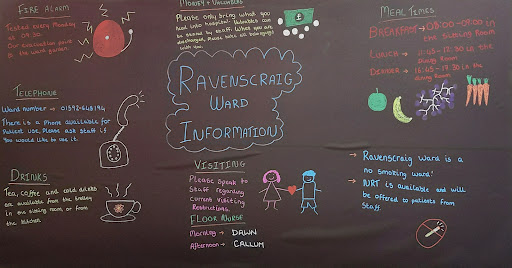 FIRE ALARM
Tested every Monday
at 09.30.
Our evacuation point
is the ward garden.
MONEY + VALUABLES
Please only bring what you
need into hospital. Valuables can
be stored by staff. When you are
discharged, Please take all belongings
with you.
MEAL TIMES
BREAKFAST → 08:00 - 09:00 in
the dining Room
LUNCH → 11:45 - 12:30 in the
dining Room
DINNER → 16:45 - 17:30 in the
dining Room
TELEPHONE
Ward number →
There is a Phone available for
Patient use. Please ask staff if
you would like to use it.
RAVENSCRAIG
WARD
INFORMATION
DRINKS
Tea, coffee and cold drinks
are available from the trolley
in the dining room or from
the kitchen.
VISITING
Please speak to
Staff regarding
current visiting
Restrictions.
FLOOR NURSE
Morning → DAWN
Afternoon → CALLUM
→ Ravenscraig ward is a
no smoking ward!
→ NRT is available and will
be offered to patients from
Staff.